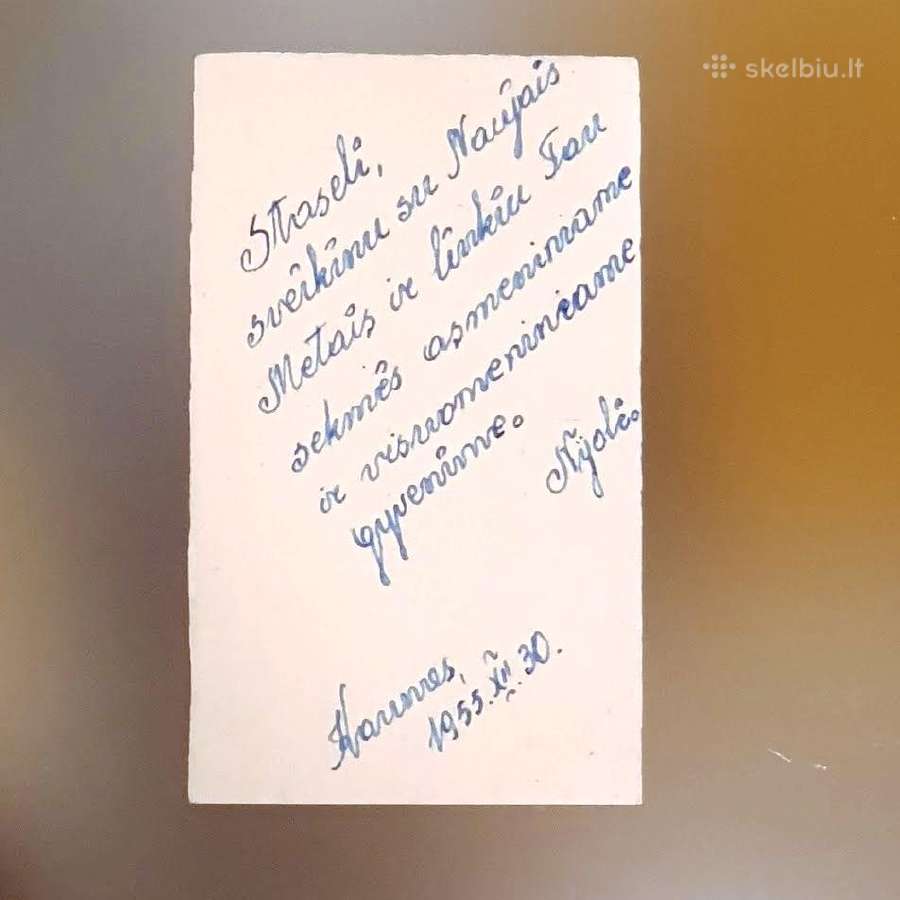 skelbiu.lt
Staseli,
sveikinu su Naujais
Metais ir linkiu Tau
sekmės asmeniniame
ir visuomeniniame
gyvenime.
Nijolė.
Kaunas,
1955.XII.30.